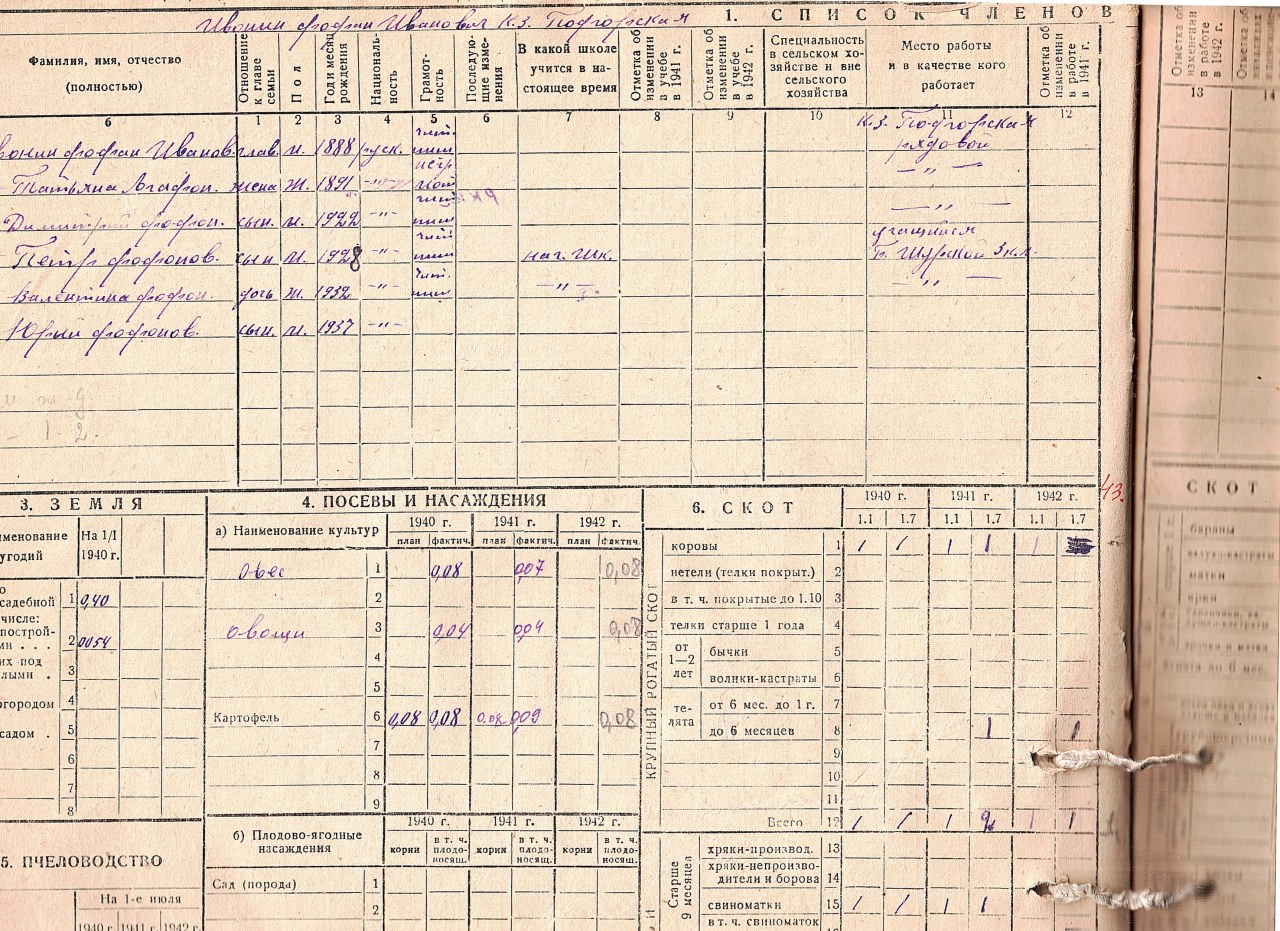 Ивонин Фофан Иванович К.З. Подгорская
1. СПИСОК ЧЛЕНОВ
Фамилия, имя, отчество (полностью)
Отношение к главе семьи
Пол
Год и месяц рождения
Националь-ность
Грамот-ность
Последую-щие изме-нения
В какой школе учится в на-стоящее время
Отметка об изменении в учебе в 1941 г.
Отметка об изменении в учебе в 1942 г.
Специальность в сельском хо-зяйстве и вне сельского хозяйства
Место работы и в качестве кого работает
Отметка об изменении в работе в 1941 г.
Отметка об изменении в работе в 1942 г.
б 1 2 3 4 5 6 7 8 9 10 11 12 13 14
Фофан Иванов. глав. м. 1888 руск. К.З. Подгорская рядовой
Татьяна Агафон. жена ж. 1891 -"- -"-
Димитрий Фофон. сын. м. 1922 -"- -"-
Петр Фофонов. сын м. 1928 -"- нач. шк. учащийся Б. Шурской 3 кл.
Валентина Фофон. дочь ж. 1932 -"- -"- -"-
Юрий Фофонов. сын. м. 1937 -"-
- 1 - 2.
43.
3. ЗЕМЛЯ
На 1/I 1940 г.
угодий
садебной 1 0,40
числе:
построй-
2 0054
их под
3
огородом 4
садом . 5
6
7
8
5. ПЧЕЛОВОДСТВО
На 1-е июля
1940 г. 1941 г. 1942 г.
4. ПОСЕВЫ И НАСАЖДЕНИЯ
а) Наименование культур
1940 г. 1941 г. 1942 г.
план фактич. план фактич. план фактич.
Овес 1 0,08 0,07 0,08
2
Овощи 3 0,04 0,04 0,08
4
5
Картофель 6 0,08 0,08 0,08 0,09 0,08
7
8
9
б) Плодово-ягодные насаждения
1940 г. 1941 г. 1942 г.
корни в т. ч. плодо-носящ. корни в т. ч. плодо-носящ. корни в т. ч. плодо-носящ.
Сад (порода) 1
2
6. СКОТ
1940 г. 1941 г. 1942 г.
1.1 1.7 1.1 1.7 1.1 1.7
КРУПНЫЙ РОГАТЫЙ СКОТ
коровы 1 1 1 1 1 1
нетели (телки покрыт.) 2
в т. ч. покрытые до 1.10 3
телки старше 1 года 4
от 1—2 лет
бычки 5
волики-кастраты 6
те-лята
от 6 мес. до 1 г. 7
до 6 месяцев 8 1 1
9
10
11
Всего 12 1 1 1 2 1 1
Старше 9 месяцев
хряки-производ. 13
хряки-непроизво-дители и борова 14
свиноматки 15 1 1 1 1
в т. ч. свиноматок
СКОТ
бараны
матки
ярки